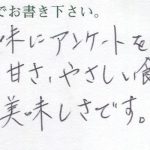 でお書き下さい。
味にアンケートを
甘さ、やさしい食
美味しさです。